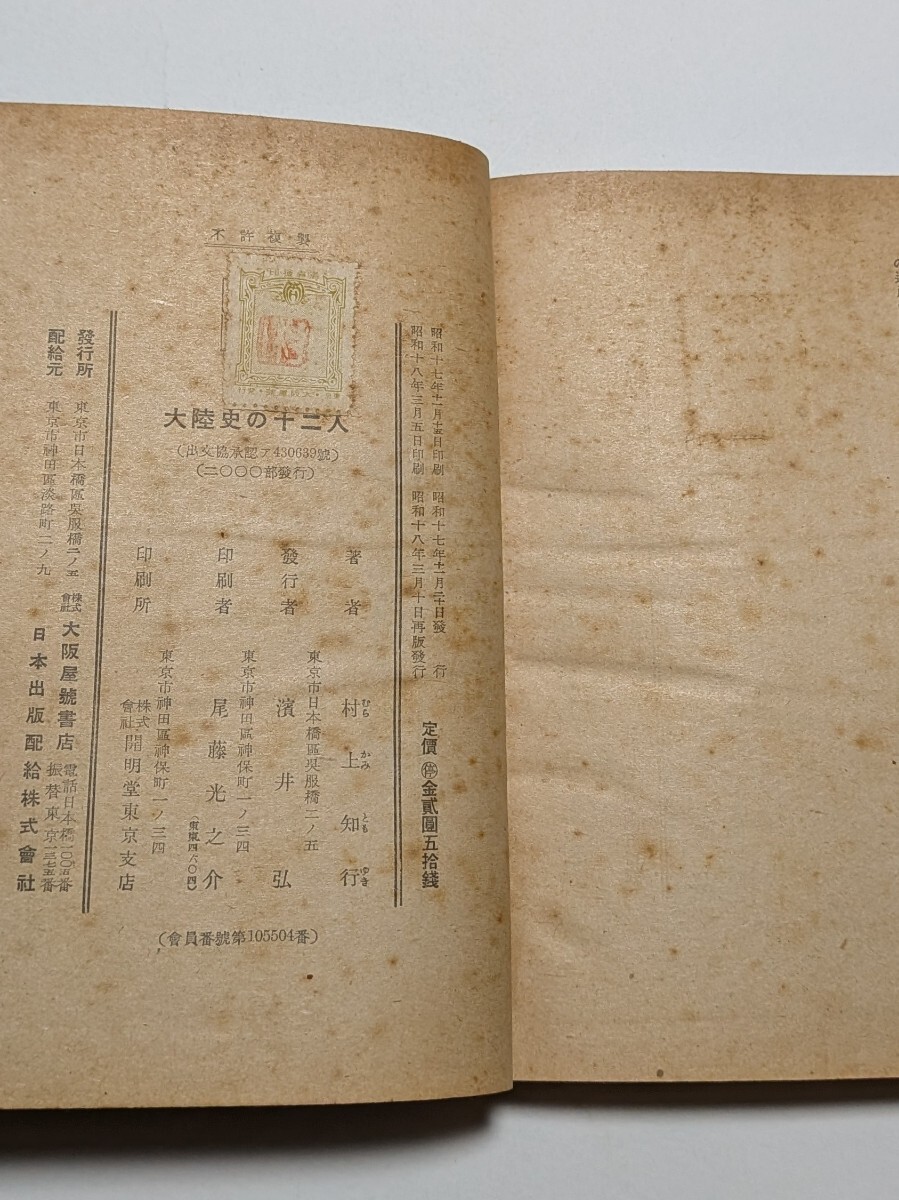 不許複製
大陸史の十二人
(出文協承認ア430639號)
(二〇〇〇部發行)
昭和十七年十一月十五日印刷 昭和十七年十一月二十日發行
昭和十八年三月五日印刷 昭和十八年三月十日再版發行
定價 ㊡ 金貳圓五拾錢
著者 村上知行
むら かみ とも ゆき
東京市日本橋區吳服橋二ノ五
發行者 濱井弘
東京市神田區神保町一ノ三四
印刷者 尾藤光之介
(東東四六〇四)
東京市神田區神保町一ノ三四
印刷所 株式會社開明堂東京支店
發行所 東京市日本橋區吳服橋二ノ五 株式會社 大阪屋號書店
配給元 東京市神田區淡路町二ノ九 日本出版配給株式會社
(會員番號第105504番)